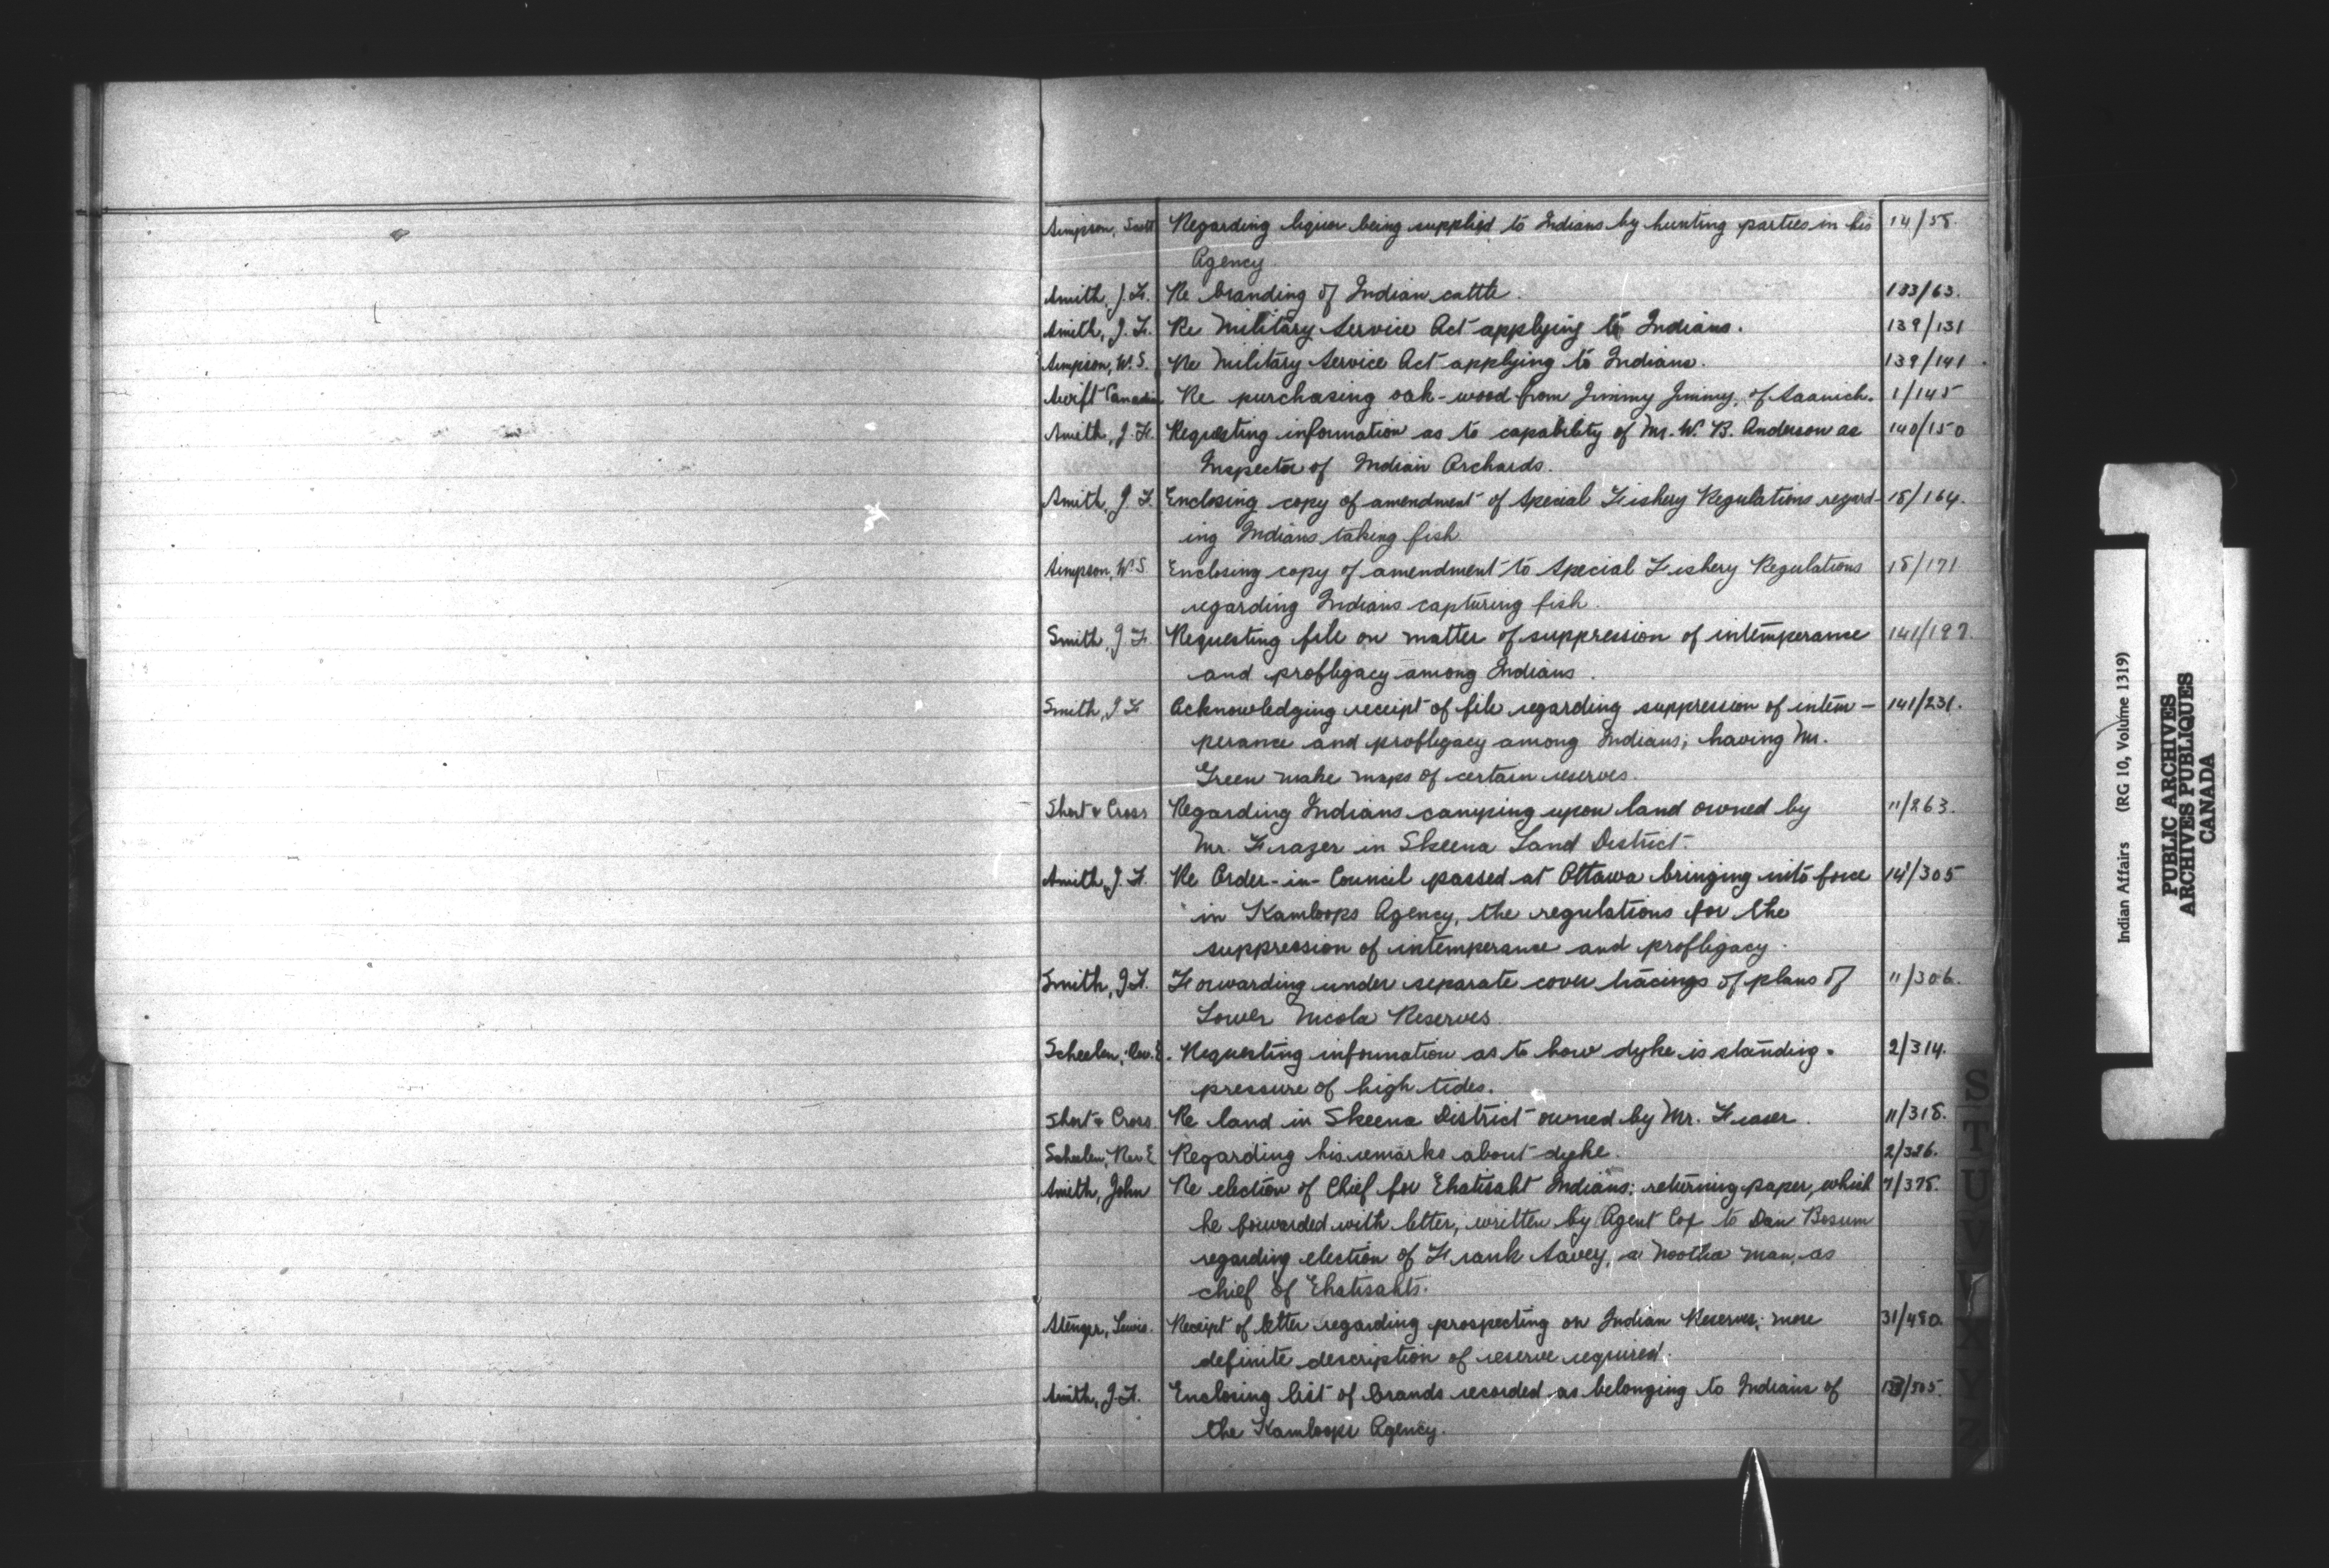 Simpson, Scott Regarding liquor being supplied to Indians by hunting parties in his 14/58.
Agency
Smith, J. F. Re branding of Indian cattle. 133/63.
Smith, J. F. Re Military Service Act applying to Indians. 139/131
Simpson, W. S. Re Military Service Act applying to Indians. 139/141
Swift Canadian Re purchasing oak-wood from Jimmy Jimmy, of Saanich. 1/145
Smith, J. F. Requesting information as to capability of Mr. W. B. Anderson as 140/150
Inspector of Indian Orchards.
Smith, J. F. Enclosing copy of amendment of Special Fishery Regulations regard- 18/164.
ing Indians taking fish
Simpson, W. S. Enclosing copy of amendment to Special Fishery Regulations 18/171
regarding Indians capturing fish.
Smith, J. F. Requesting file on matter of suppression of intemperance 141/197.
and profligacy among Indians.
Smith, J F Acknowledging receipt of file regarding suppression of intem- 141/231.
perance and profligacy among Indians; having Mr.
Green make maps of certain reserves.
Short & Cross Regarding Indians camping upon land owned by 11/263.
Mr. Frazer in Skeena Land District.
Smith, J. F. Re Order-in-Council passed at Ottawa bringing into force 141/305
in Kamloops Agency, the regulations for the
suppression of intemperance and profligacy.
Smith, J F. Forwarding under separate cover tracings of plans of 11/306.
Lower Nicola Reserves
Scheelen, Rev. E. Requesting information as to how dyke is standing. 2/314.
pressure of high tides.
Short & Cross. Re land in Skeena District owned by Mr. Fraser. 11/318.
Scheelen, Rev E Regarding his remarks about dyke. 2/326.
Smith, John Re election of Chief for Ehatisaht Indians; returning paper, which 7/378.
he forwarded with letter, written by Agent Cox to Dan Bosum
regarding election of Frank Savey, a Nootka man, as
chief of Ehatisahts.
Stenger, Lewis. Receipt of letter regarding prospecting on Indian Reserves; more 31/480.
definite description of reserve required.
Smith, J. F. Enclosing list of brands recorded as belonging to Indians of 133/505
the Kamloops Agency.
S
T
U
V
X
Y
Z
Indian Affairs (RG 10, Volume 1319)
PUBLIC ARCHIVES
ARCHIVES PUBLIQUES
CANADA